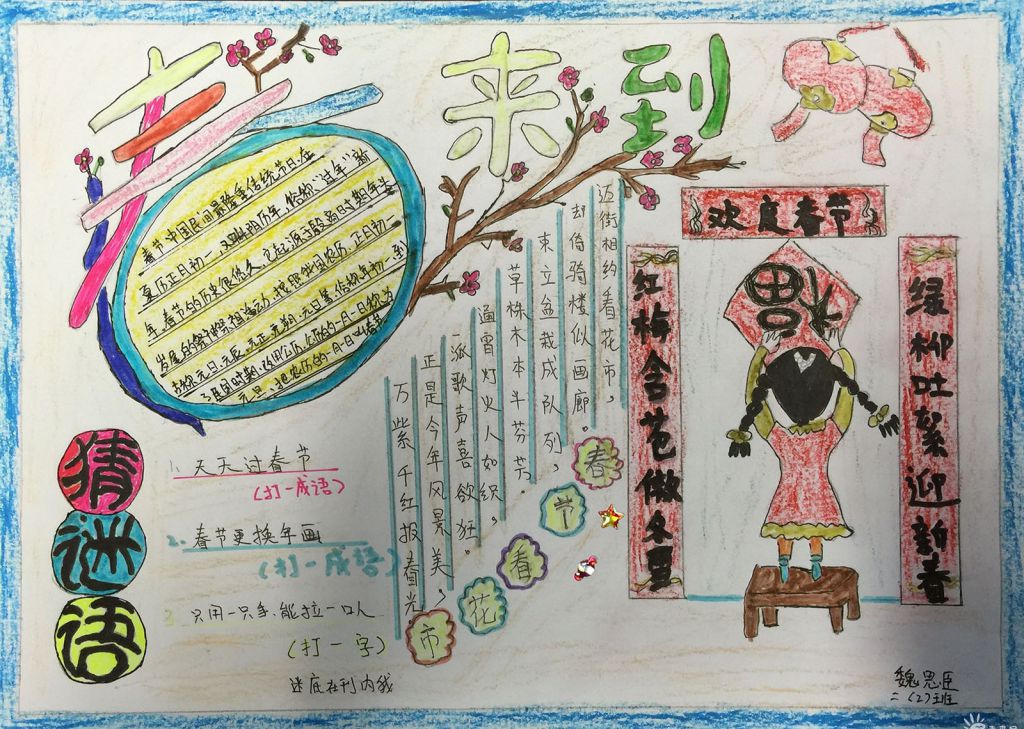 春来到
春节中国民间最隆重传统节日。在
夏历正月初一,又叫阴历年,俗称"过年""新
年。春节的历史很悠久,它起源于殷商时期年头
岁尾的祭神祭祖活动。按照我国农历,正月初一
古称元日、元辰、元正、元朔、元旦等,俗称年初一,到
了民国时期,改用公历,公历的一月一日称为
元旦,把农历的一月一日叫春节
迈街相约看花市,
却倚骑楼似画廊。
束立盆栽成队列,
草株木本斗芬芳。
通宵灯火人如织。
一派歌声喜欲狂。
正是今年风景美,
万紫千红报春光。
春节看花市
猜谜语
1、天天过春节
(打一成语)
2、春节更换年画
(打一成语)
3、只用一只手、能拉一口人
(打一字)
迷底在刊内我
欢度春节
红梅含苞傲冬夏
绿柳吐絮迎新春
福
魏思臣
二(2)班